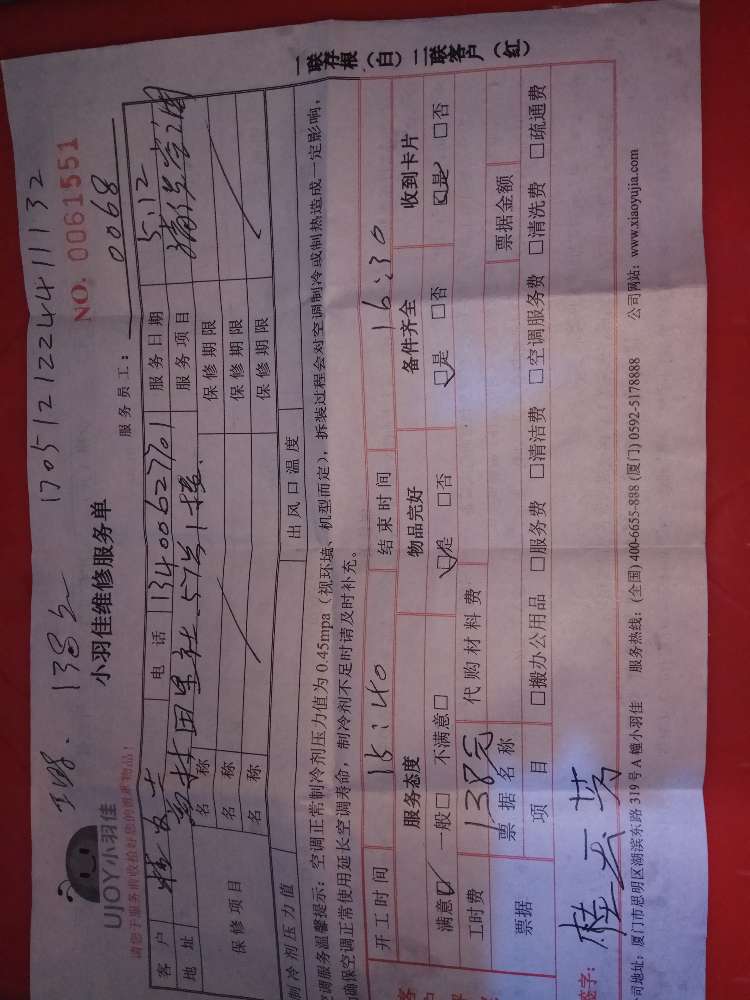 138元 17051212244111132
UJOY小羽佳
小羽佳维修服务单
NO. 0061551
请您于服务前收检好您的贵重物品!
服务员工: 0068
客户 电话 13400627701 服务日期 5.12
地址 田里社 57号1楼 服务项目
保修项目
名称 保修期限
名称 保修期限
名称 保修期限
制冷剂压力值 出风口温度
空调服务温馨提示:空调正常制冷剂压力值为0.45mpa(视环境、机型而定),拆装过程会对空调制冷或制热造成一定影响,
确保空调正常使用延长空调寿命,制冷剂不足时请及时补充。
开工时间 15:40 结束时间 16:30
服务态度 物品完好 备件齐全 收到卡片
满意□ 一般□ 不满意□ □是 □否 □是 □否 □是 □否
工时费 138元 代购材料费
票据 票据名称 票据金额
项目 □搬办公用品 □服务费 □清洁费 □空调服务费 □清洗费 □疏通费
签字:
公司地址:厦门市思明区湖滨东路319号A幢小羽佳 服务热线:(全国)400-6655-888 (厦门)0592-5178888 公司网站:www.xiaoyujia.com
一联存根(白)二联客户(红)